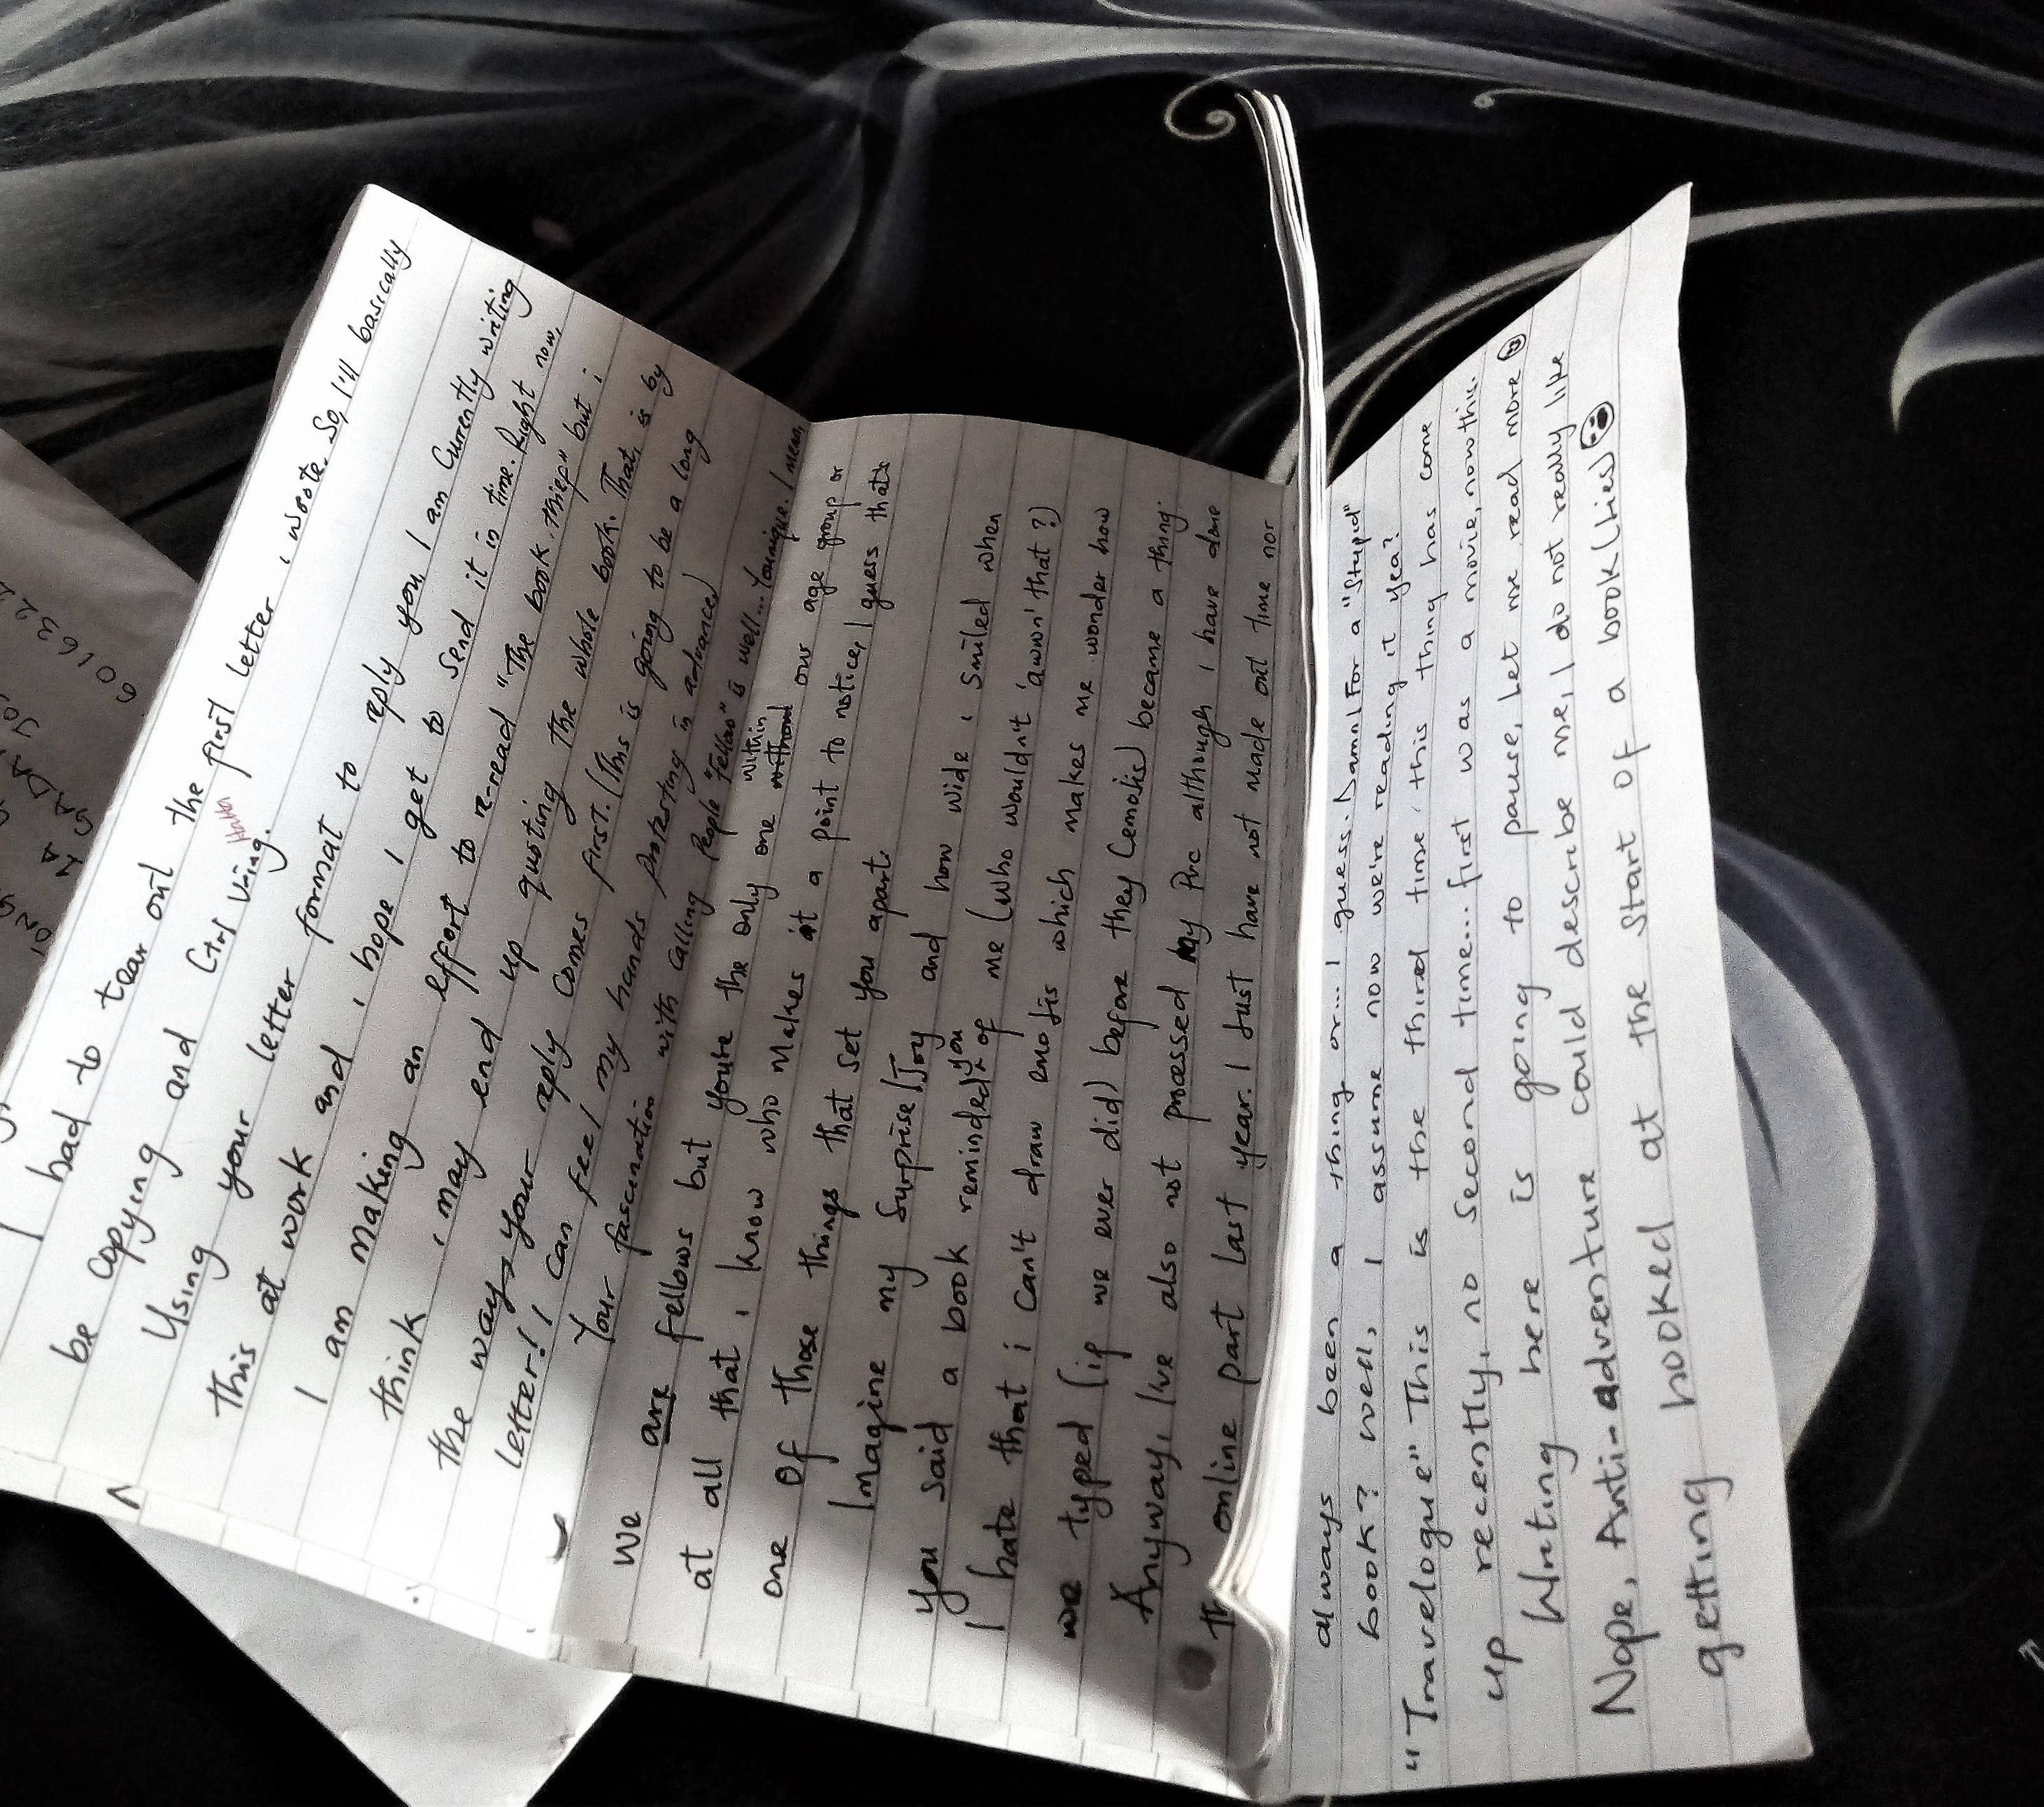 I had to tear out the first letter i wrote. So, I'll basically
be copying and Ctrl Ving. Haha
Using your letter format to reply you, I am Currently writing
this at work and i hope I get to send it in time. Right now,
I am making an effort to re-read "The book thief" but i
think i may end up quoting the whole book. That is by
the way, your reply comes first. (This is going to be a long
letter! I can feel my hands protesting in advance)
Your fascination with calling people "Fellow" is well... Younique. I mean,
We are fellows but you're the only one within our age group or
at all that i know who makes it a point to notice, I guess that's
one of those things that set you apart.
Imagine my surprise/Joy and how wide i smiled when
you said a book reminded you of me (who wouldn't 'awnn' that?)
I hate that i can't draw emojis which makes me wonder how
we typed (if we ever did) before they (emojis) became a thing.
Anyway, I've also not processed my Pvc although I have done
the online part last year. I Just have not made out time nor
always been a thing or... I guess. Damn! For a "stupid"
book? well, I assume now we're reading it yea?
"Travelogue" This is the third time this thing has come
up recently, no second time... first was a movie, now this.
Writing here is going to pause, Let me read more
Nope, Anti-adventure could describe me, I do not really like
getting hooked at the start of a book (Lies)
601632